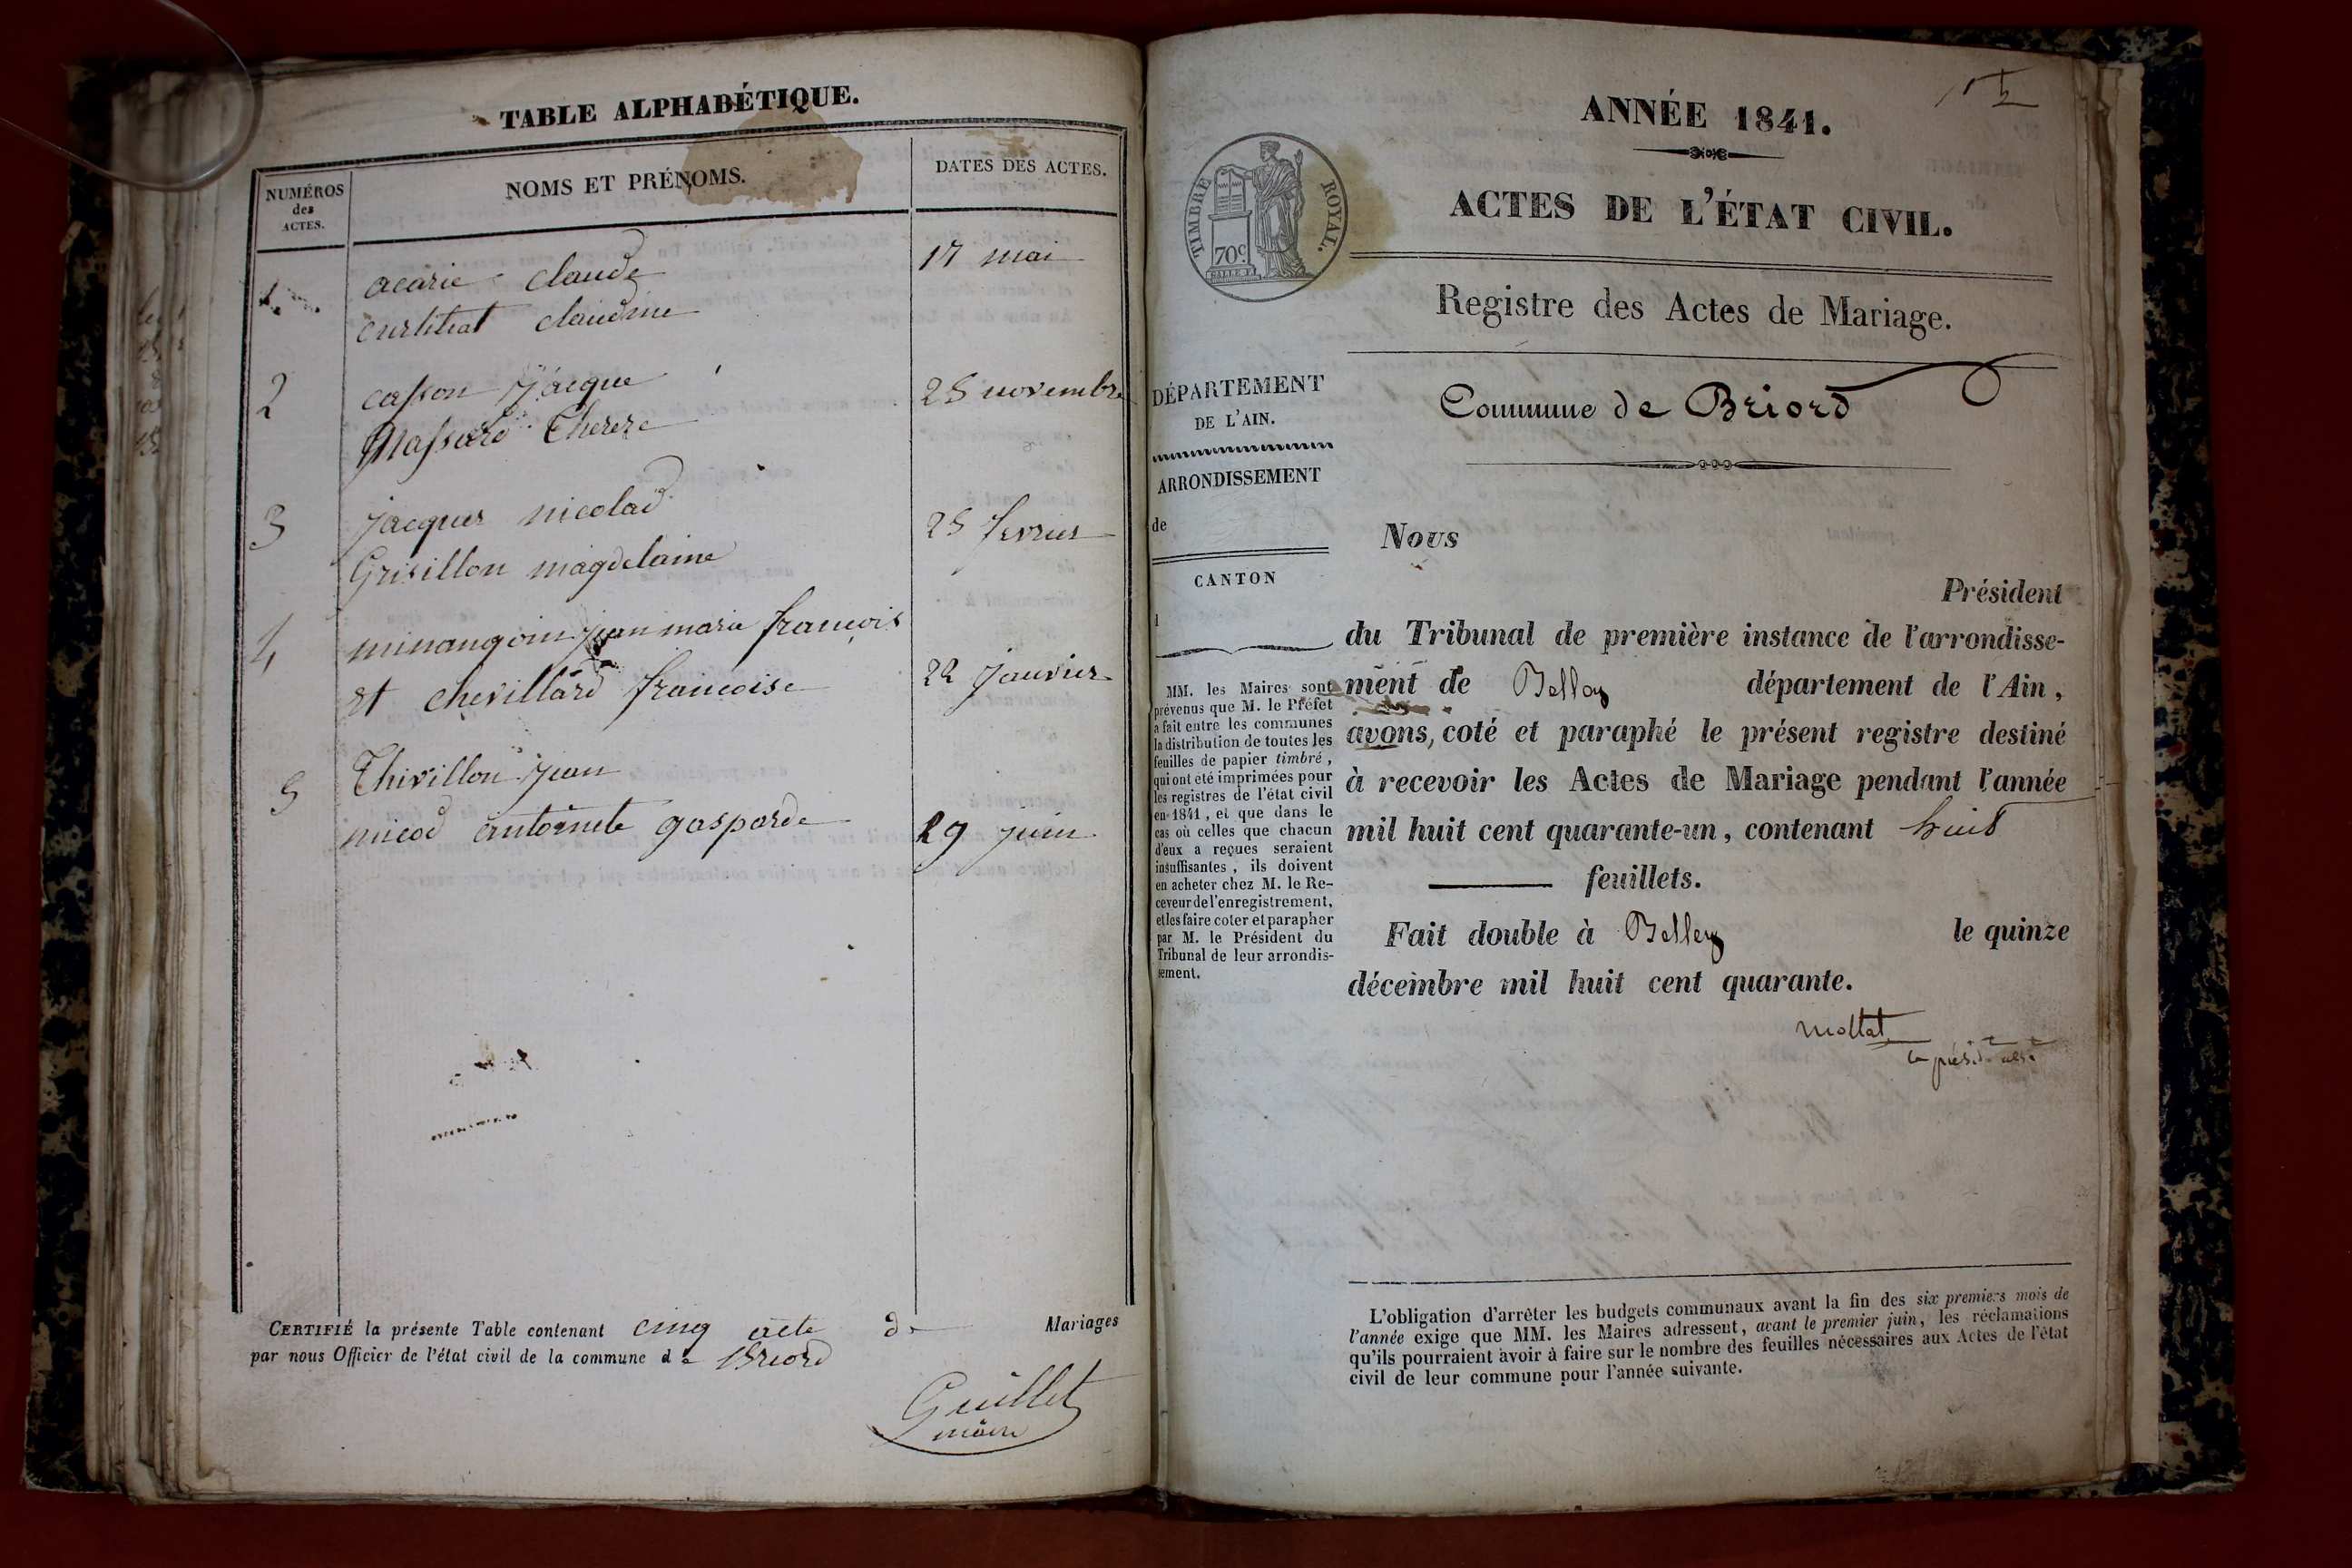 TABLE ALPHABÉTIQUE.
NUMÉROS
des
ACTES.
NOMS ET PRÉNOMS.
DATES DES ACTES.
1 acarie claude 17 mai
curtiliat claudine
2 casson jacque 25 novembre
Massard Thereze
3 jacques nicolad 25 fevrier
Grisillon magdelaine
4 minangoin jean marie françois
et chevillard francoise 22 janvier
5 Thivillon jean
micod antoinete gasparde 29 juin
CERTIFIÉ la présente Table contenant cinq acte de Mariages
par nous Officier de l'état civil de la commune de Briord
Guillet
maire
ANNÉE 1841.
ACTES DE L'ÉTAT CIVIL.
TIMBRE ROYAL.
70c.
Registre des Actes de Mariage.
Commune de Briord
DÉPARTEMENT
DE L'AIN.
ARRONDISSEMENT
de
CANTON
MM. les Maires sont
prévenus que M. le Préfet
a fait entre les communes
la distribution de toutes les
feuilles de papier timbré,
qui ont été imprimées pour
les registres de l'état civil
en 1841, et que dans le
cas où celles que chacun
d'eux a reçues seraient
insuffisantes, ils doivent
en acheter chez M. le Re-
ceveur de l'enregistrement,
et les faire coter et parapher
par M. le Président du
Tribunal de leur arrondis-
sement.
Nous
Président
du Tribunal de première instance de l'arrondisse-
ment de Belley département de l'Ain,
avons, coté et paraphé le présent registre destiné
à recevoir les Actes de Mariage pendant l'année
mil huit cent quarante-un, contenant huit
feuillets.
Fait double à Belley le quinze
décembre mil huit cent quarante.
mottat
L'obligation d'arrêter les budgets communaux avant la fin des six premiers mois de
l'année exige que MM. les Maires adressent, avant le premier juin, les réclamations
qu'ils pourraient avoir à faire sur le nombre des feuilles nécessaires aux Actes de l'état
civil de leur commune pour l'année suivante.